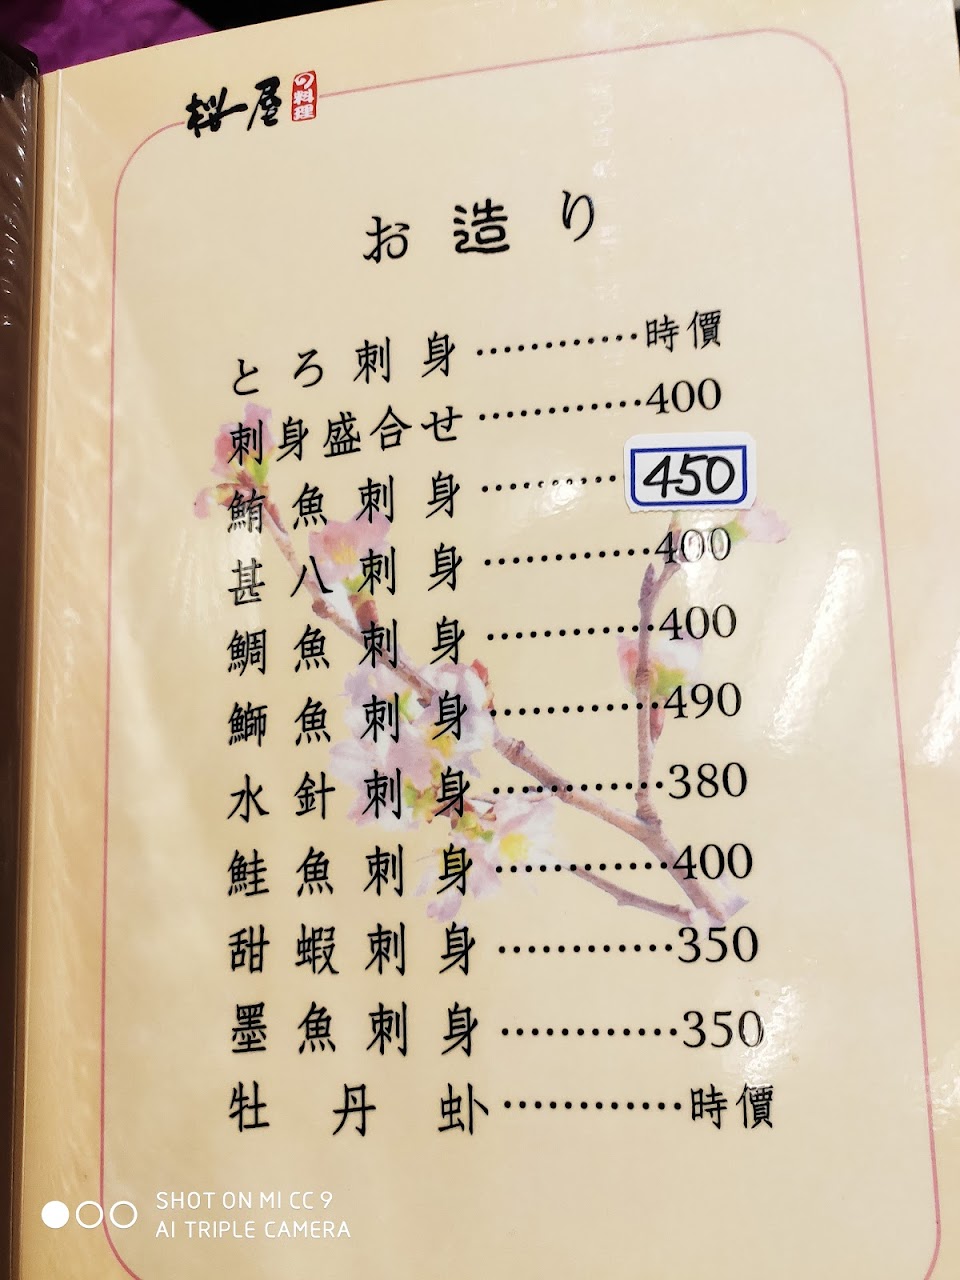 桜屋
の料理
お造り
とろ刺身…………時價
刺身盛合せ…………400
鮪魚刺身…………450
甚八刺身…………400
鯛魚刺身…………400
鰤魚刺身…………490
水針刺身…………380
鮭魚刺身…………400
甜蝦刺身…………350
墨魚刺身…………350
牡丹虾…………時價
SHOT ON MI CC 9
AI TRIPLE CAMERA